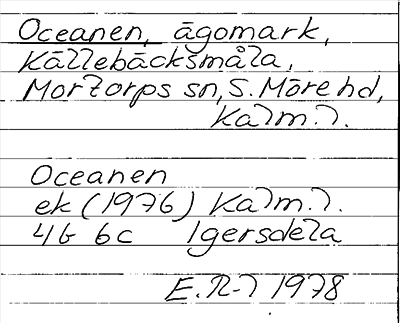 Oceanen, ägomark,
Källebäcksmåla,
Mortorps sn, S. Möre hd,
Kalm. l.
Oceanen
ek (1976) Kalm. l.
4G 6c Igersdela
E. R-l 1978